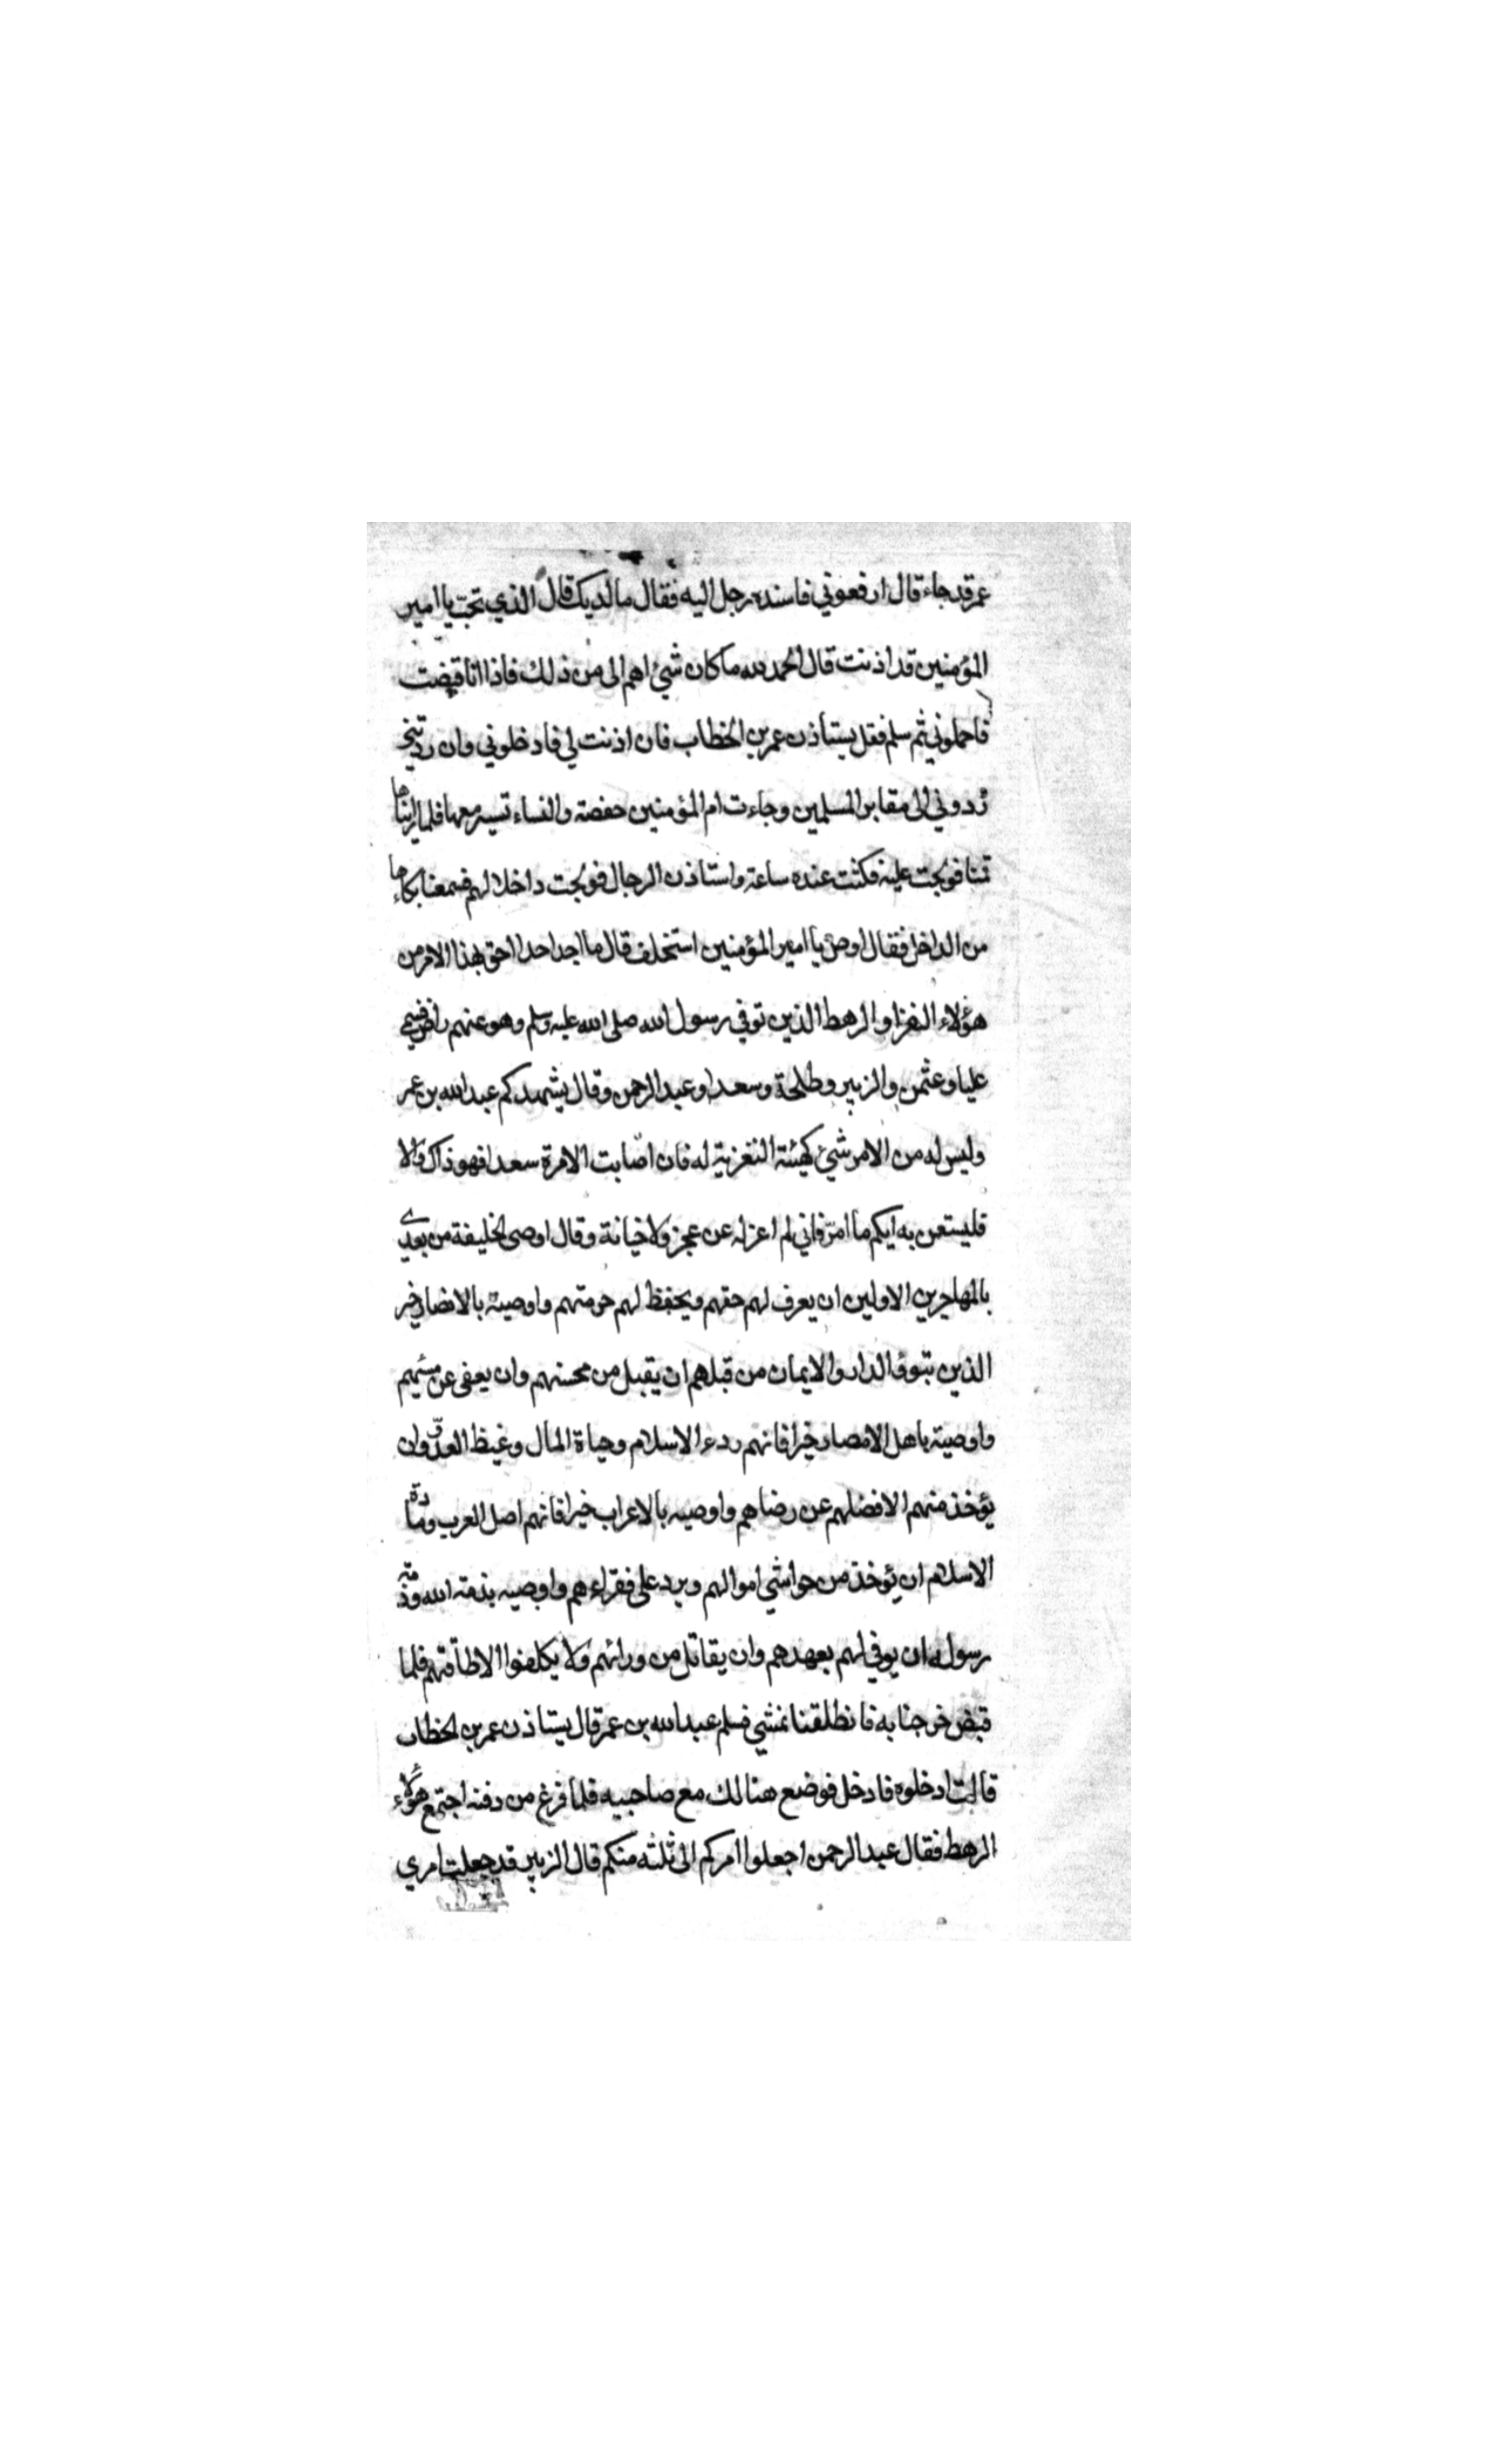 عمر قد جاء قال ارفعوني فاسنده رجل اليه فقال ما لديك قال الذي تحب يا امير
المؤمنين قد اذنت قال الحمد لله ما كان شئ اهم الي من ذلك فاذا انا قبضت
فاحملوني ثم سلم فقل يستأذن عمر بن الخطاب فان اذنت لي فادخلوني وان ردتني
ردوني الى مقابر المسلمين وجاءت ام المؤمنين حفصة والنساء تسير معها فلما رايناها
قمنا فولجت عليه فمكثت عنده ساعة واستاذن الرجال فولجت داخلا لهم فسمعنا بكاءها
من الداخل فقال اوص يا امير المؤمنين استخلف قال ما اجد احدا احق بهذا الامر من
هؤلاء النفر او الرهط الذين توفي رسول الله صلى الله عليه وسلم وهو عنهم راض فسمى
عليا وعثمن والزبير وطلحة وسعدا وعبد الرحمن وقال يشهدكم عبد الله بن عمر
وليس له من الامر شئ كهيئة التعزية له فان اصابت الامرة سعدا فهو ذاك والا
فليستعن به ايكم ما امر فاني لم اعزله عن عجز ولا خيانة وقال اوصي الخليفة من بعدي
بالمهاجرين الاولين ان يعرف لهم حقهم ويحفظ لهم حرمتهم واوصيه بالانصار خير
الذين تبوؤ الدار والايمان من قبلهم ان يقبل من محسنهم وان يعفى عن مسيئهم
واوصيه باهل الامصار خيرا فانهم ردء الاسلام وجباة المال وغيظ العدو وان
يؤخذ منهم الا فضلهم عن رضاهم واوصيه بالاعراب خيرا فانهم اصل العرب ومادة
الاسلام ان يؤخذ من حواشي اموالهم ويرد على فقراءهم واوصيه بذمة الله وذمة
رسوله ان يوفي لهم بعهدهم وان يقاتل من ورائهم ولا يكلفوا الا طاقتهم فلما
قبض خرجنا به فانطلقنا نمشي فسلم عبد الله بن عمر قال يستاذن عمر بن الخطاب
قالت ادخلوه فادخل فوضع هنالك مع صاحبيه فلما فرغ من دفنه اجتمع هؤلاء
الرهط فقال عبد الرحمن اجعلوا امركم الى ثلثه منكم قال الزبير قد جعلت امري